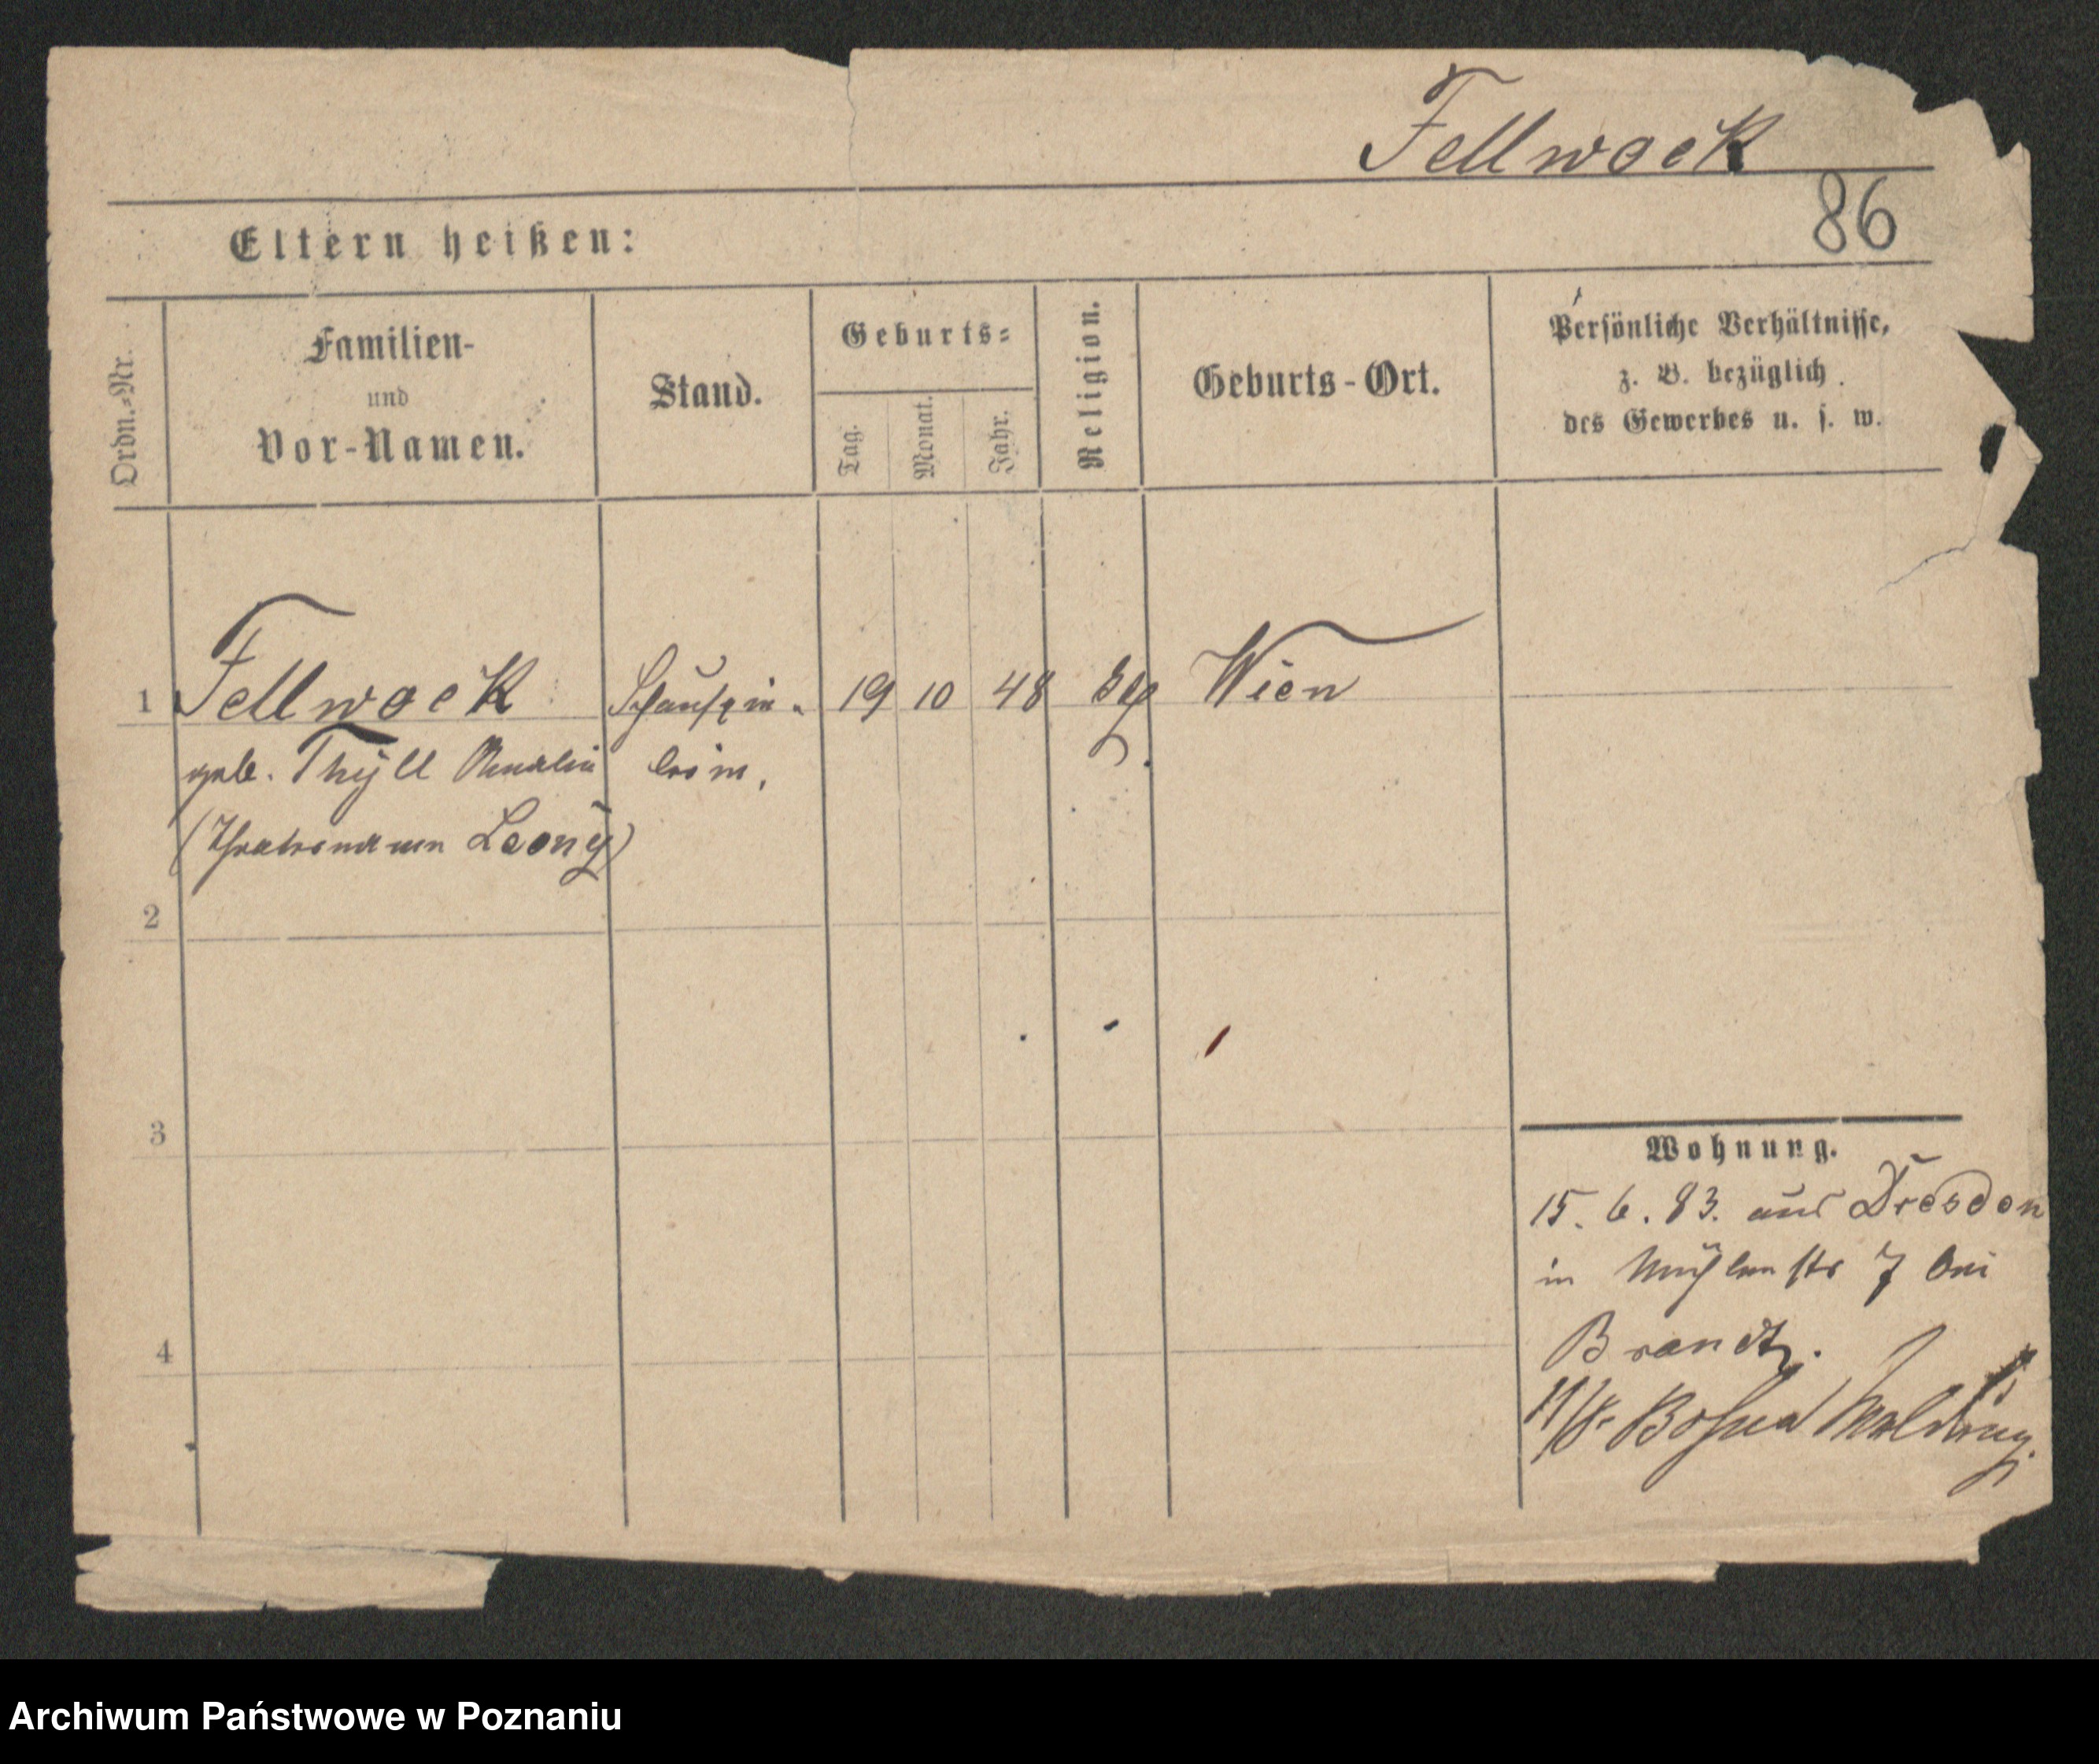 Fellwock
86
Eltern heißen:
Ordn.-Nr.
Familien-
und
Vor-Namen.
Stand.
Geburts-
Tag.
Monat.
Jahr.
Religion.
Geburts-Ort.
Persönliche Verhältnisse,
z. B. bezüglich
des Gewerbes u. s. w.
1 Fellwock Schauspie- 19 10 48 Wien
geb. Thÿll Amalie lerin,
(Theatername Leony)
2
3
4
Wohnung.
15. 6. 83. aus Dresden
in Mühlenstr 7 bei
Brandt.
Archiwum Państwowe w Poznaniu